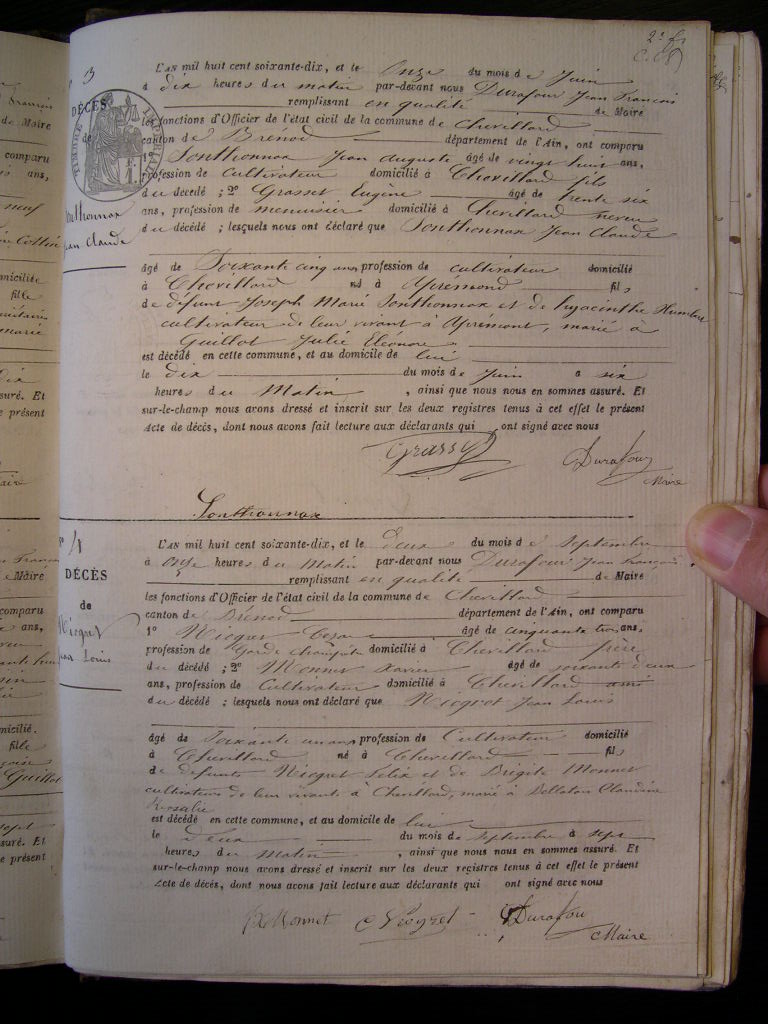 2e f
N° 3
DÉCÈS
de
Sonthonnax
Jean Claude
TIMBRE IMPÉRIAL
L'AN mil huit cent soixante-dix, et le Onze du mois de Juin
à dix heures du matin par-devant nous Durafour Jean François
remplissant en qualité de Maire
les fonctions d'Officier de l'état civil de la commune de Chevillard
canton de Brénod département de l'Ain, ont comparu
1° Sonthonnax Jean Auguste âgé de vingt huit ans,
profession de Cultivateur domicilié à Chevillard fils
du decedé ; 2° Grasset Eugène âgé de trente six
ans, profession de menuisier domicilié à Chevillard neveu
du décédé ; lesquels nous ont déclaré que Sonthonnax Jean Claude
âgé de Soixante cinq ans, profession de cultivateur domicilié
à Chevillard né à Apremond fils
de défunt Joseph Marie Sonthonnax et de hyacinthe Humbert
cultivateur de leur vivant à Aprémont, marié à
Guillot Julie Eléonore
est décédé en cette commune, et au domicile de lui
le dix du mois de Juin à six
heures du Matin, ainsi que nous nous en sommes assuré. Et
sur-le-champ nous avons dressé et inscrit sur les deux registres tenus à cet effet le présent
Acte de décès, dont nous avons fait lecture aux déclarants qui ont signé avec nous
Durafour
Maire
Sonthonnax
N° 4
DÉCÈS
de
Niogret
Jean Louis
L'AN mil huit cent soixante-dix, et le deux du mois de Septembre
à onze heures du Matin par-devant nous Durafour Jean François,
remplissant en qualité de Maire
les fonctions d'Officier de l'état civil de la commune de Chevillard
canton de Brénod département de l'Ain, ont comparu
1° Niogret Cezar âgé de cinquante trois ans,
profession de Garde champêtre domicilié à Chevillard frère
du decedé ; 2° Monnet Xavier âgé de soixante deux
ans, profession de Cultivateur domicilié à Chevillard ami
du décédé ; lesquels nous ont déclaré que Niogret Jean Louis
âgé de Soixante un ans, profession de Cultivateur domicilié
à Chevillard né à Chevillard fils
de defunts Niogret Felix et de Brigite Monnet
cultivateurs de leur vivants à Chevillard, marié à Bellaton Claudine
Rosalie
est décédé en cette commune, et au domicile de lui
le Deux du mois de Septembre à sept
heures du Matin, ainsi que nous nous en sommes assuré. Et
sur-le-champ nous avons dressé et inscrit sur les deux registres tenus à cet effet le présent
Acte de décès, dont nous avons fait lecture aux déclarants qui ont signé avec nous
X Monnet C Niogret Durafour
Maire